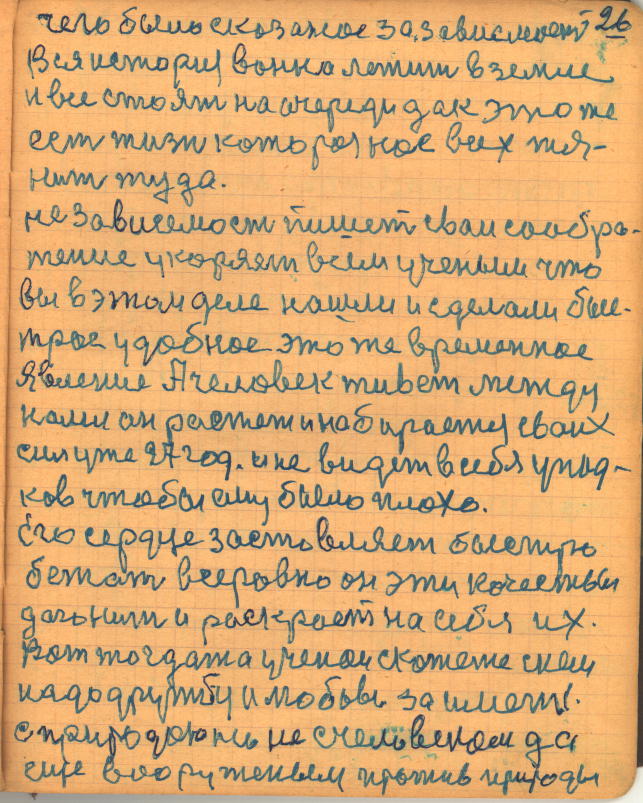 чего было сказаное За, зависмост 26
Вся история вонка летит в земле
и все стоят на очереди дак это же
сет жизни которая нас всех тя-
нит туда.
не зависемост пишет сваи сообра-
жение укоряет всем ученым что
вы в этом деле нашли и сделали быс-
трае удобное это же временное
Явление А человек живет между
нами он растет и набирается своих
сил уже 27 год. и не видет в себя упад-
ков чтобы ему было плохо.
Его сердце заставляет быстро
бежат всеровно он эти качествы
дагонит и раскроет на себя их.
Вот тогда та ученаи скажете с кем
надо дружбу и любовь заимет!.
с природаю не с человеком да
еще вооруженым против природы